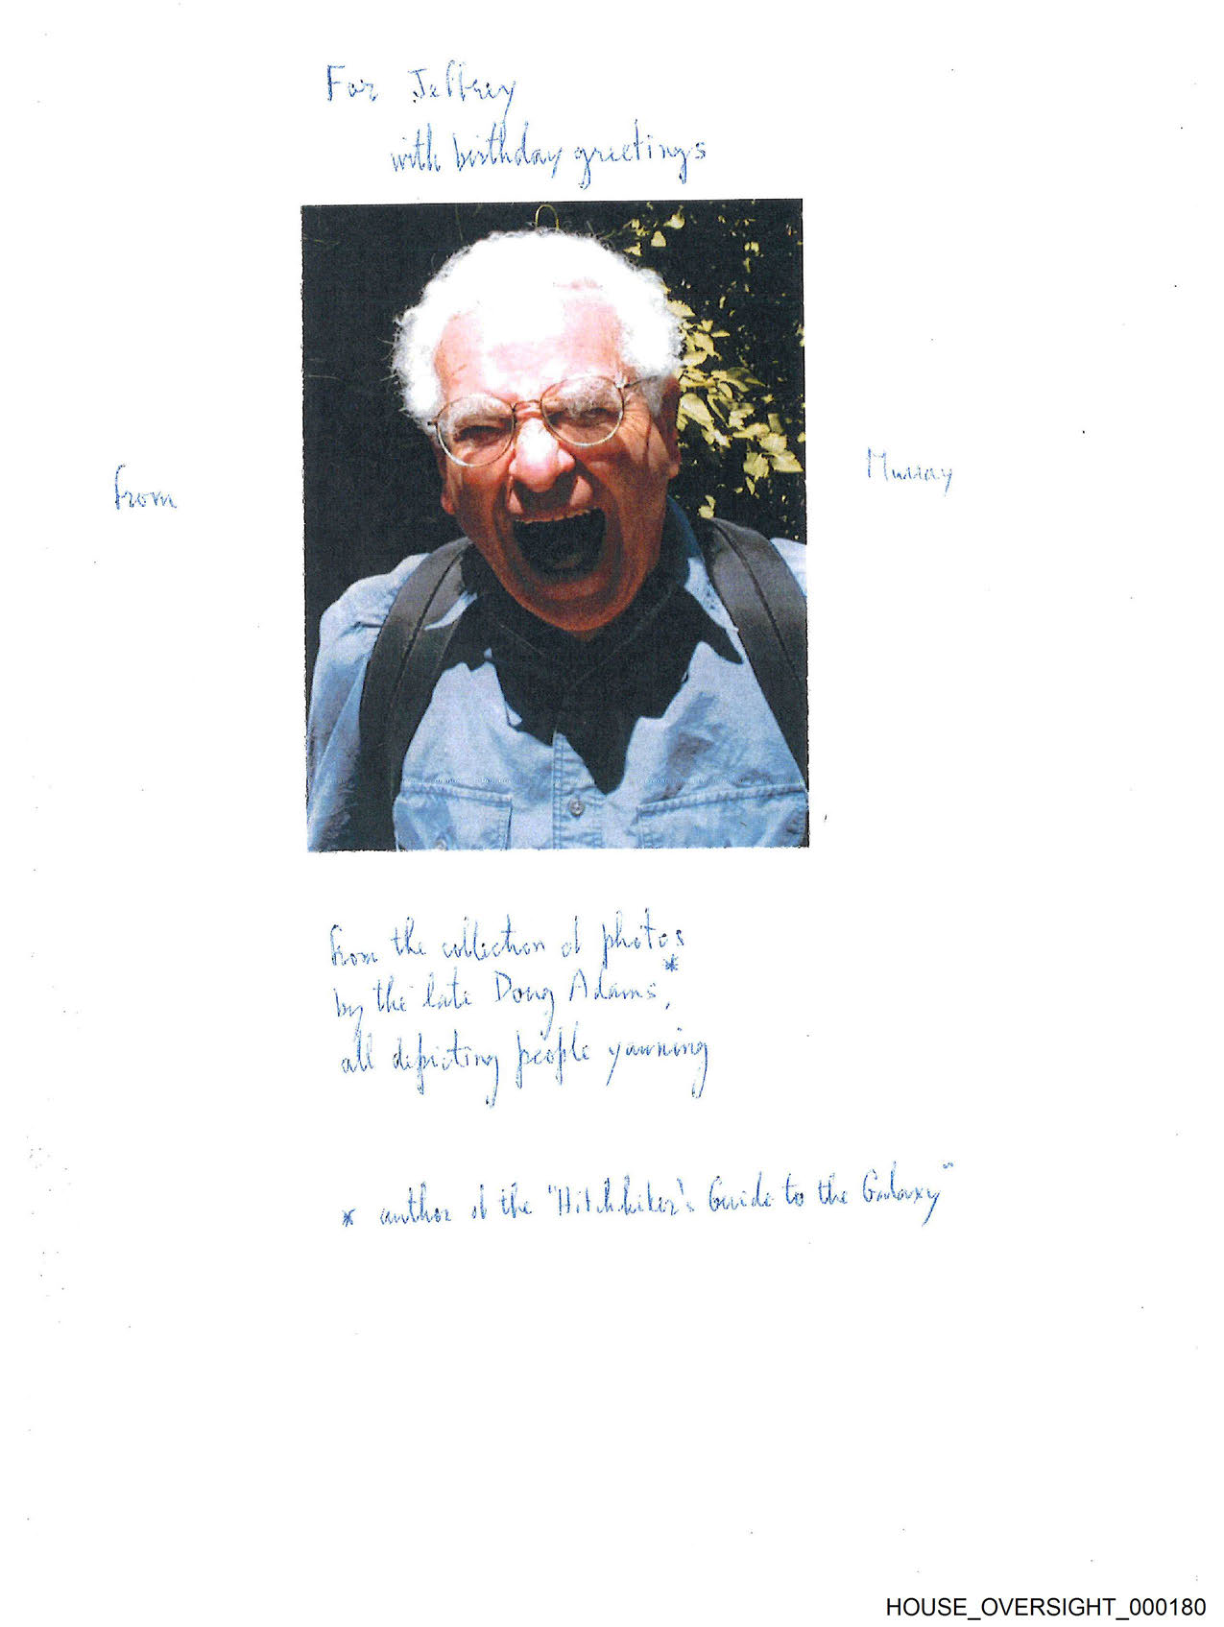 For Jeffrey
with birthday greetings
from
Murray
from the collection of photos
by the late Doug Adams*,
all depicting people yawning
* author of the "Hitchhiker's Guide to the Galaxy"
HOUSE_OVERSIGHT_000180